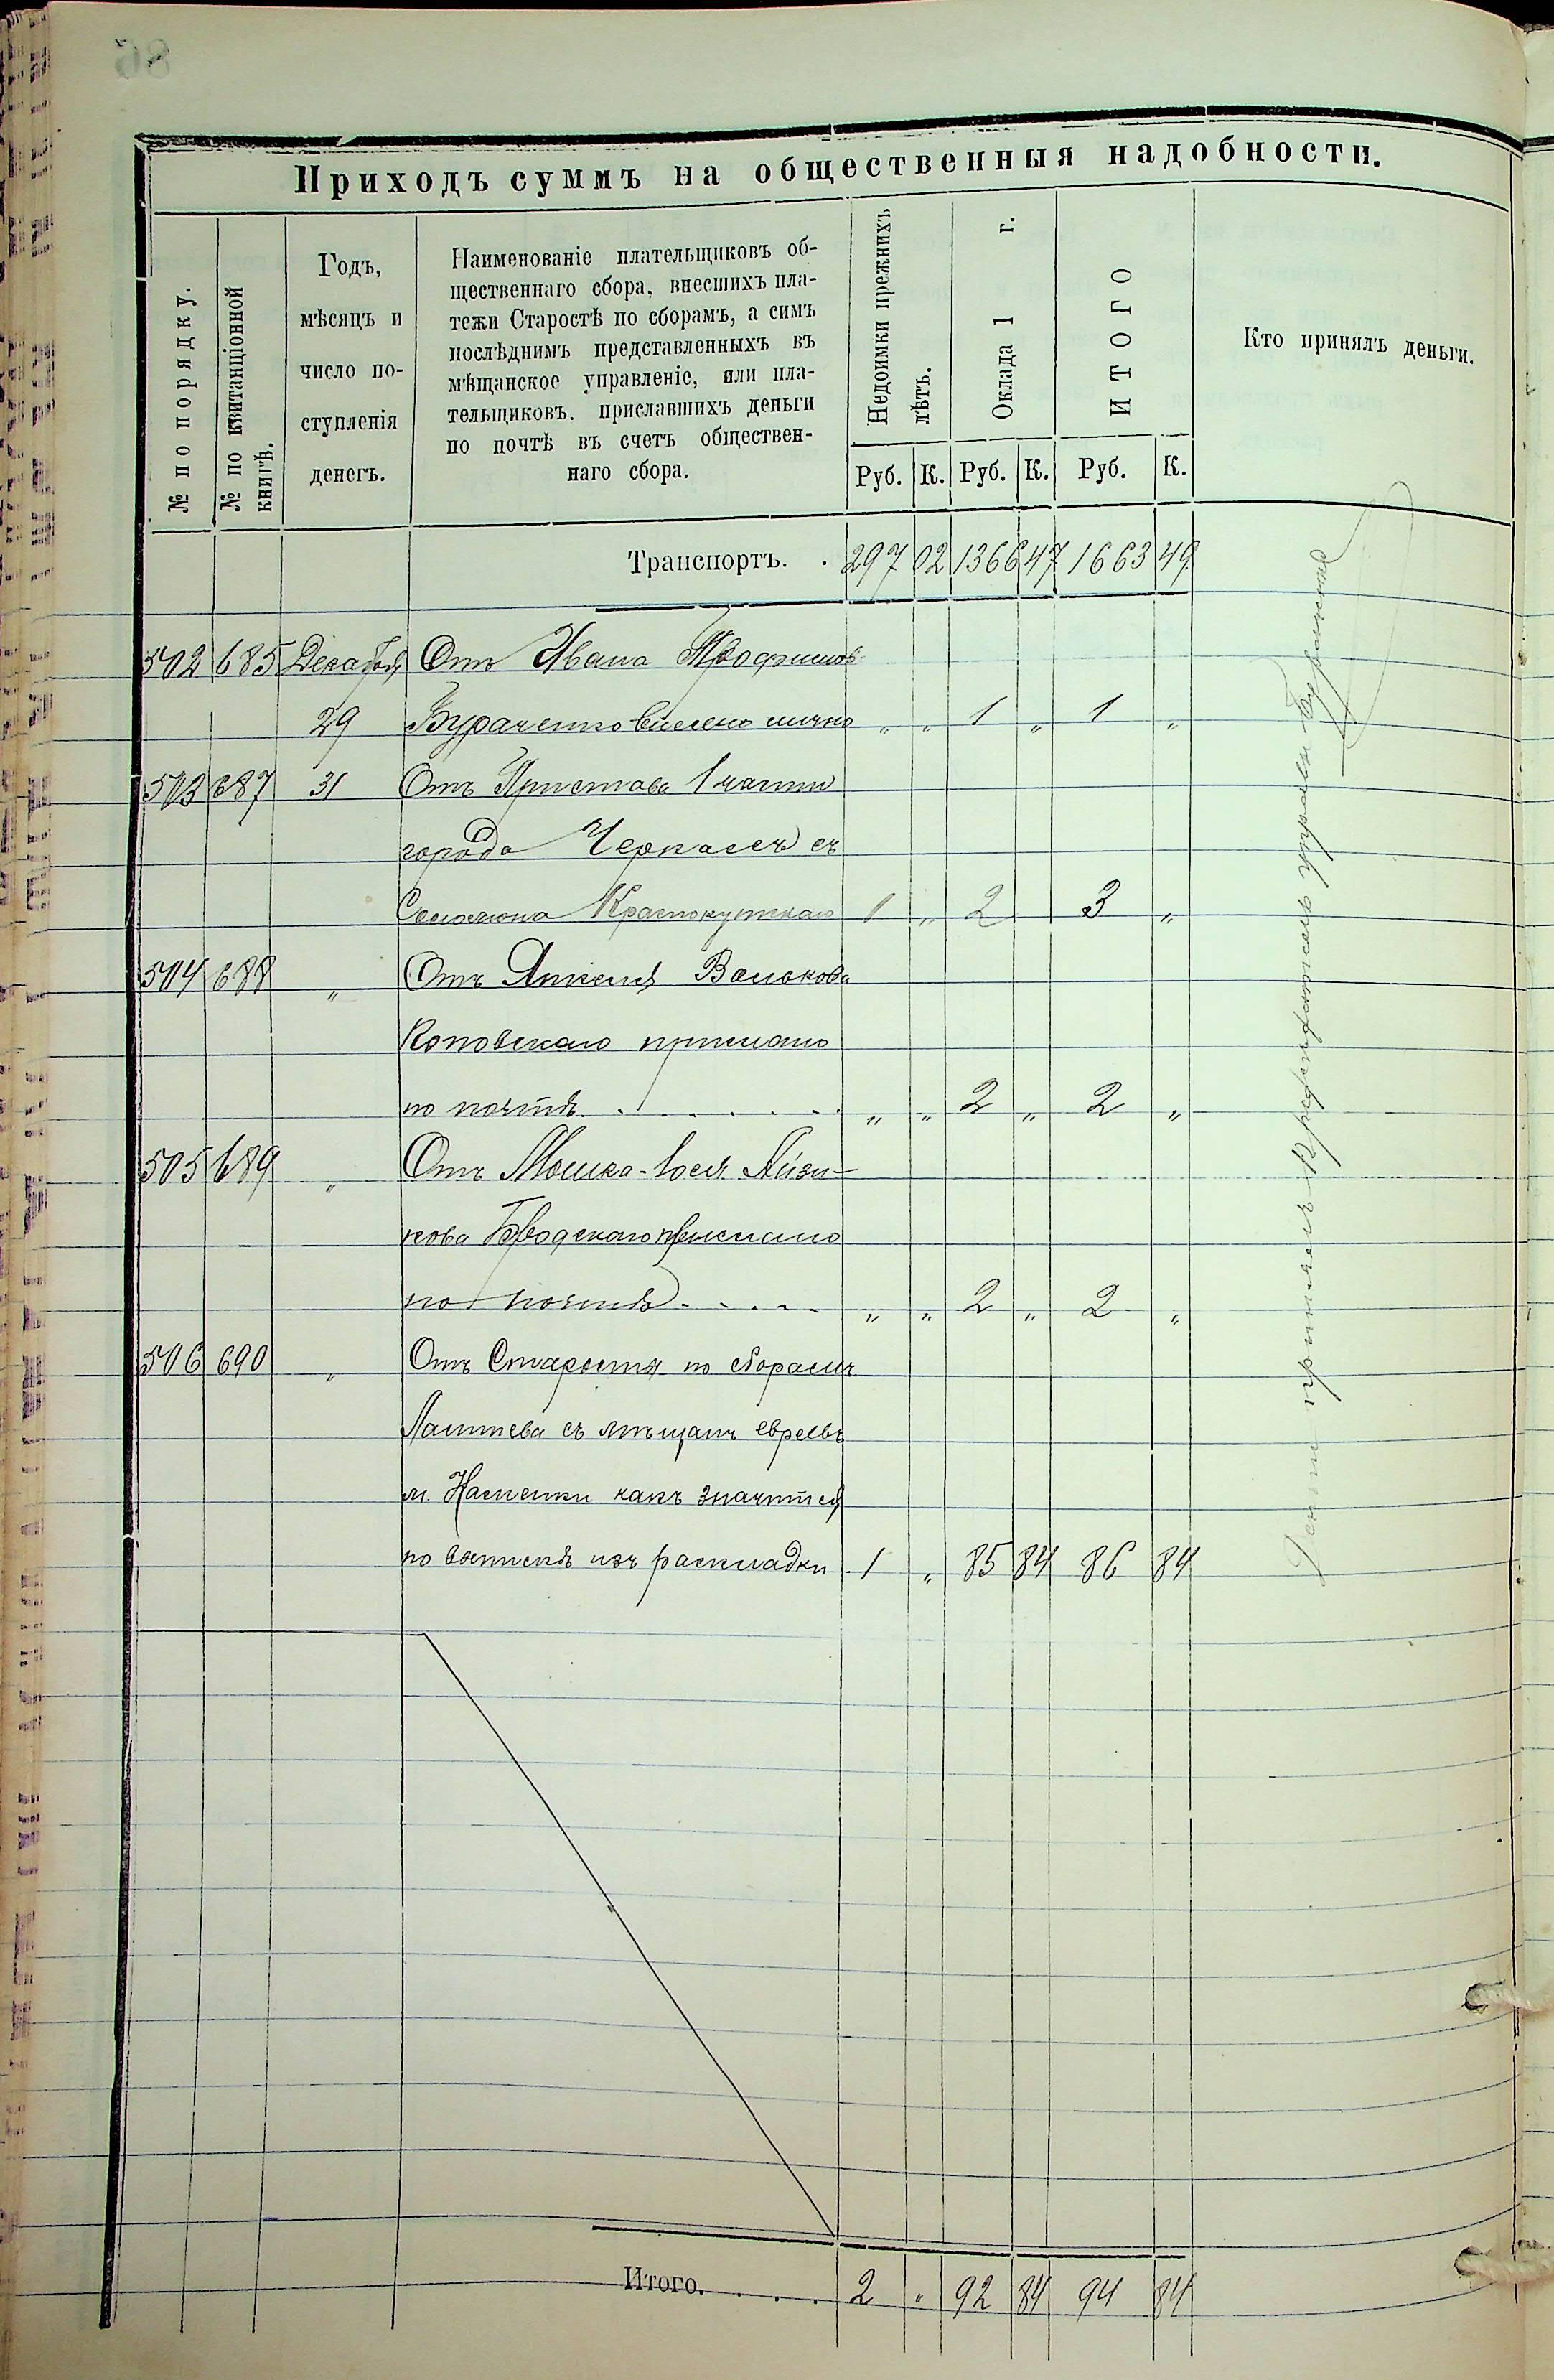 Приходъ суммъ на общественныя надобности.
№ по порядку.
№ по квитанціонной
книгѣ.
Годъ,
мѣсяцъ и
число по-
ступленія
денегъ.
Наименованіе плательщиковъ об-
щественнаго сбора, внесшихъ пла-
тежи Старостѣ по сборамъ, а симъ
послѣднимъ представленныхъ въ
мѣщанское управленіе, или пла-
тельщиковъ. приславшихъ деньги
по почтѣ въ счетъ обществен-
наго сбора.
Недоимки прежнихъ
лѣтъ.
Оклада 1 г.
ИТОГО
Руб. К. Руб. К. Руб. К.
Кто принялъ деньги.
Транспортъ. . 297 02 1366 47 1663 49
502 685 Декабря Отъ Ивана Трофимов
29 Бураченко внесено лично „ „ 1 „ 1 „
503 687 31 Отъ Пристава 1 части
города Черкассъ съ
Краснокутскаго 1 „ 2 3 „
504 688 „ Отъ Янкеля Волькова
Коповскаго прислано
по почтѣ . . . . . . . „ „ 2 „ 2 „
505 689 „ Отъ Мошка-Іося Айзи-
кова Бродскаго прислано
по почтѣ . . . . „ „ 2 „ 2 „
506 690 „ Отъ Старосты по сборамъ
съ мѣщанъ евреевъ
м. Каменки какъ значится
по выпискѣ изъ раскладки 1 „ 85 84 86 84
Деньги принялъ Предсѣдатель управы
Итого. . . . 2 „ 92 84 94 84